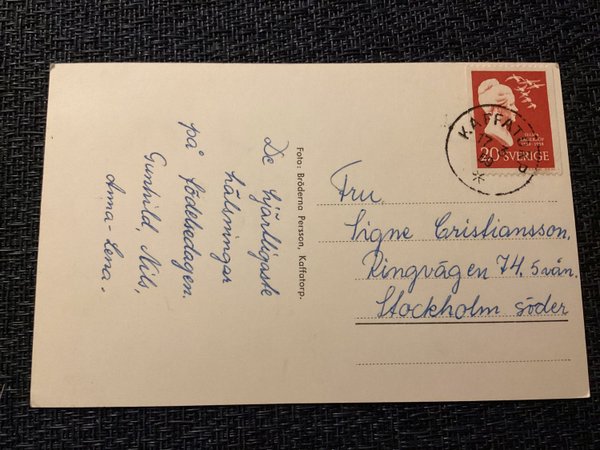 De hjärtligaste
hälsningar
på födelsedagen.
Gunhild, Nils,
Anna-Lena.
Foto: Bröderna Persson, Kaffatorp.
KAFFATORP
20 SVERIGE
Fru
Signe Cristiansson,
Ringvägen 74, 5 vån.
Stockholm söder